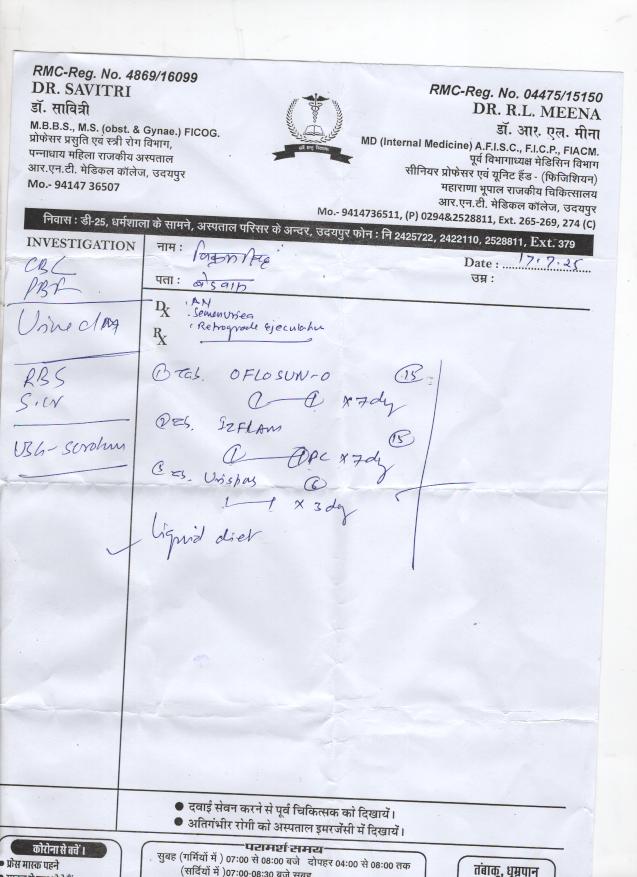 RMC-Reg. No. 4869/16099
DR. SAVITRI
डॉ. सावित्री
M.B.B.S., M.S. (obst. & Gynae.) FICOG.
प्रोफेसर प्रसुति एवं स्त्री रोग विभाग,
पन्नाधाय महिला राजकीय अस्पताल
आर.एन.टी. मेडिकल कॉलेज, उदयपुर
Mo.- 94147 36507
RMC-Reg. No. 04475/15150
DR. R.L. MEENA
डॉ. आर. एल. मीना
MD (Internal Medicine) A.F.I.S.C., F.I.C.P., FIACM.
पूर्व विभागाध्यक्ष मेडिसिन विभाग
सीनियर प्रोफेसर एवं यूनिट हैड - (फिजिशियन)
महाराणा भूपाल राजकीय चिकित्सालय
आर.एन.टी. मेडिकल कॉलेज, उदयपुर
Mo.- 9414736511, (P) 0294&2528811, Ext. 265-269, 274 (C)
निवास : डी-25, धर्मशाला के सामने, अस्पताल परिसर के अन्दर, उदयपुर फोन : नि 2425722, 2422110, 2528811, Ext. 379
INVESTIGATION
CBC
PBF
Urine
RBS
USG - Scrotum
नाम :
Date : 17.7.25
पता :
उम्र :
Dx
. Retrograde Ejaculation
Rx
① Tab. OFLOSUN-O 15
1 — 1 x 7 day
② Tab. 15
1 — 1 PC x 7 day
③ Tab. Urispas 6
1 — 1 x 3 day
Liquid diet
● दवाई सेवन करने से पूर्व चिकित्सक को दिखायें।
● अतिगंभीर रोगी को अस्पताल इमरजेंसी में दिखायें।
कोरोना से बचें।
● फ्रेस मास्क पहने
परामर्श समय
सुबह (गर्मियों में ) 07:00 से 08:00 बजे दोपहर 04:00 से 08:00 तक
(सर्दियों में )07:00-08:30 बजे सुबह
तंबाकू, धूम्रपान